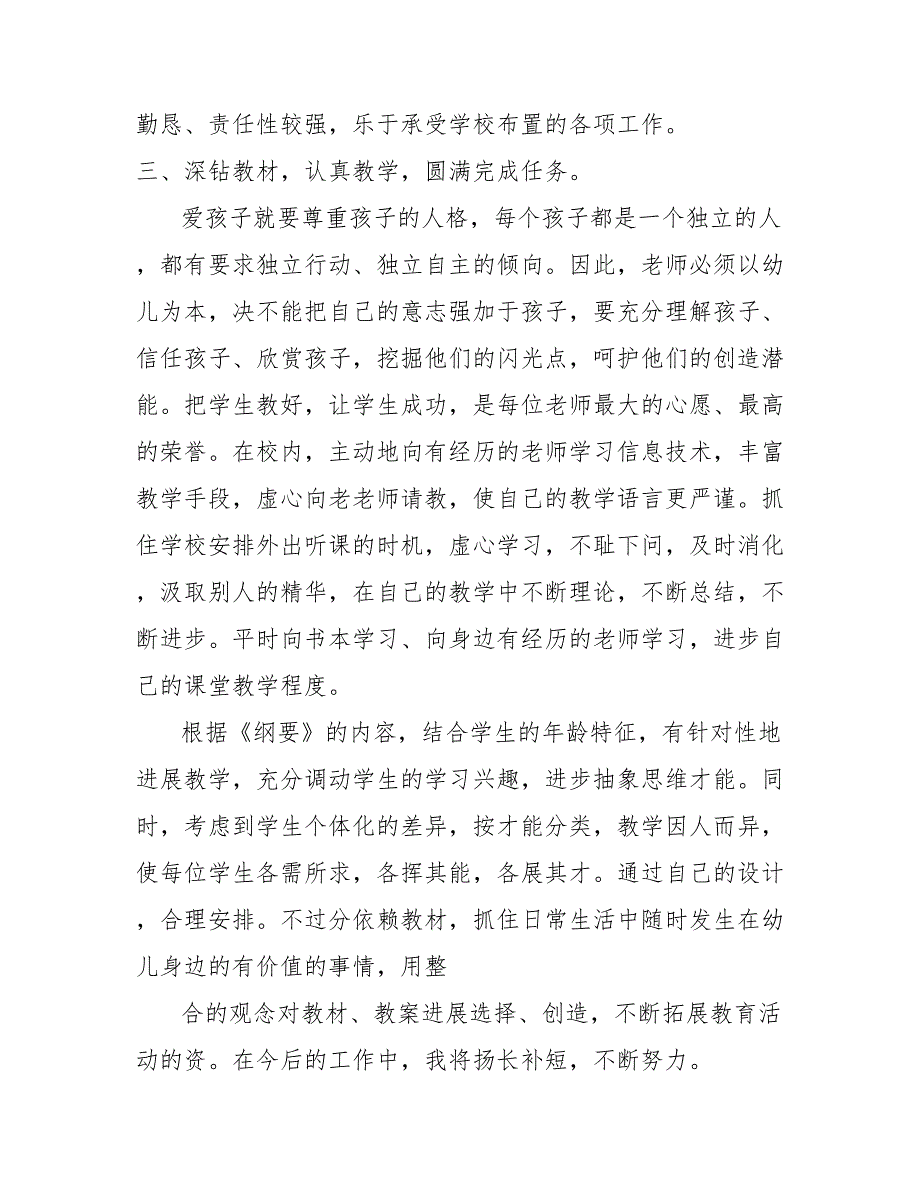 勤恳、责任性较强，乐于承受学校布置的各项工作。
三、深钻教材，认真教学，圆满完成任务。
爱孩子就要尊重孩子的人格，每个孩子都是一个独立的人
，都有要求独立行动、独立自主的倾向。因此，老师必须以幼
儿为本，决不能把自己的意志强加于孩子，要充分理解孩子、
信任孩子、欣赏孩子，挖掘他们的闪光点，呵护他们的创造潜
能。把学生教好，让学生成功，是每位老师最大的心愿、最高
的荣誉。在校内，主动地向有经历的老师学习信息技术，丰富
教学手段，虚心向老老师请教，使自己的教学语言更严谨。抓
住学校安排外出听课的时机，虚心学习，不耻下问，及时消化
，汲取别人的精华，在自己的教学中不断理论，不断总结，不
断进步。平时向书本学习、向身边有经历的老师学习，进步自
己的课堂教学程度。
根据《纲要》的内容，结合学生的年龄特征，有针对性地
进展教学，充分调动学生的学习兴趣，进步抽象思维才能。同
时，考虑到学生个体化的差异，按才能分类，教学因人而异，
使每位学生各需所求，各挥其能，各展其才。通过自己的设计
，合理安排。不过分依赖教材，抓住日常生活中随时发生在幼
儿身边的有价值的事情，用整
合的观念对教材、教案进展选择、创造，不断拓展教育活
动的资。在今后的工作中，我将扬长补短，不断努力。